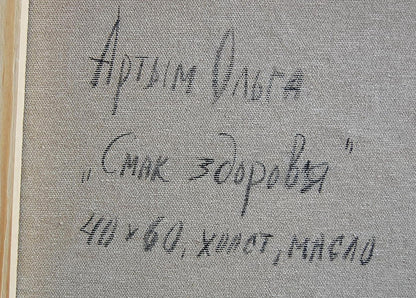 Артым Ольга
„Смак здоровя"
40×60, холст, масло